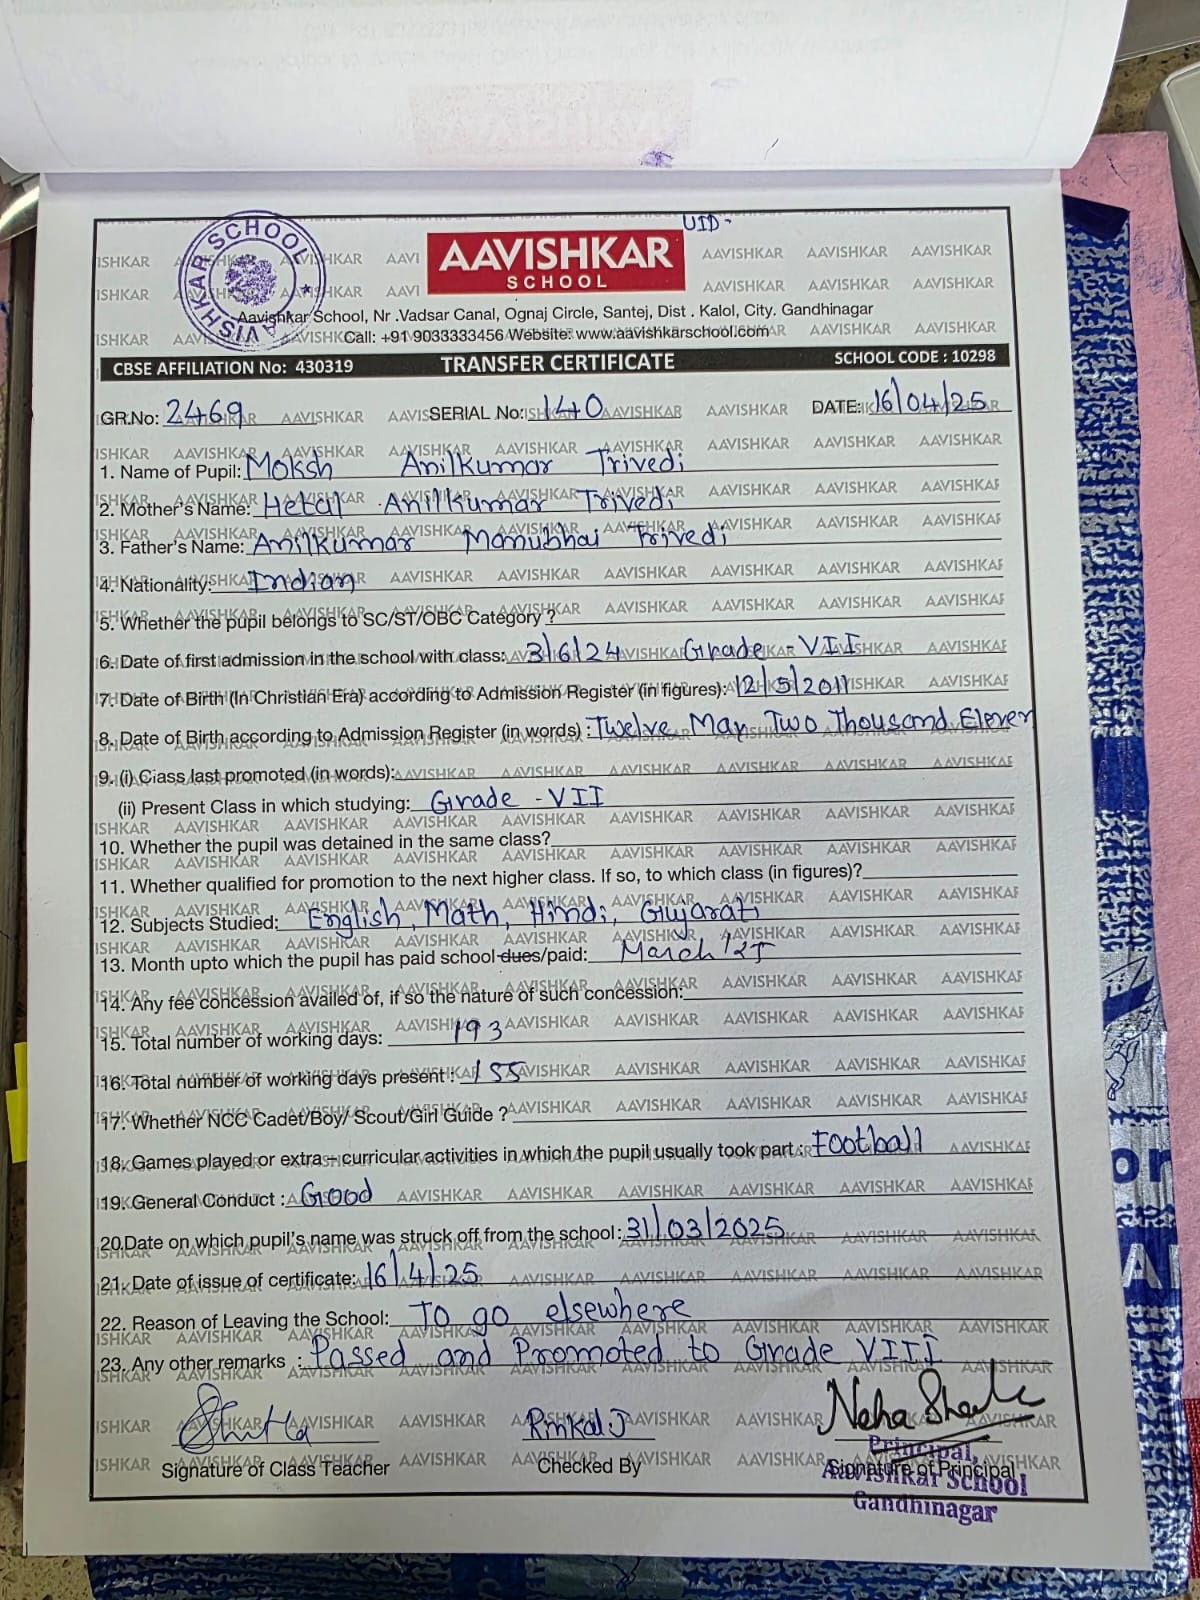 UID -
AAVISHKAR SCHOOL
AAVISHKAR
SCHOOL
Aavishkar School, Nr .Vadsar Canal, Ognaj Circle, Santej, Dist . Kalol, City. Gandhinagar
Call: +91 9033333456 Website: www.aavishkarschool.com
CBSE AFFILIATION No: 430319 TRANSFER CERTIFICATE SCHOOL CODE : 10298
GR.No: 2469 SERIAL No: 140 DATE: 16/04/25
1. Name of Pupil: Moksh Anilkumar Trivedi
2. Mother's Name: Hetal Anilkumar Trivedi
3. Father's Name: Anilkumar Manubhai Trivedi
4. Nationality: Indian
5. Whether the pupil belongs to SC/ST/OBC Category ?
6. Date of first admission in the school with class: 3/6/24 Grade - VII
7. Date of Birth (In Christian Era) according to Admission Register (in figures): 12/5/2011
8. Date of Birth according to Admission Register (in words) : Twelve May Two Thousand Eleven
9. (i) Class last promoted (in words):
(ii) Present Class in which studying: Grade - VII
10. Whether the pupil was detained in the same class?
11. Whether qualified for promotion to the next higher class. If so, to which class (in figures)?
12. Subjects Studied: English, Math, Hindi, Gujarati
13. Month upto which the pupil has paid school dues/paid: March'25
14. Any fee concession availed of, if so the nature of such concession:
15. Total number of working days: 193
16. Total number of working days present : 155
17. Whether NCC Cadet/Boy/ Scout/Girl Guide ?
18. Games played or extra – curricular activities in which the pupil usually took part : Football
19. General Conduct : Good
20.Date on which pupil's name was struck off from the school: 31/03/2025
21. Date of issue of certificate: 16/4/25
22. Reason of Leaving the School: To go elsewhere
23. Any other remarks : Passed and Promoted to Grade VIII
Rinkal J
Signature of Class Teacher Checked By Signature of Principal
Principal,
Aavishkar School
Gandhinagar